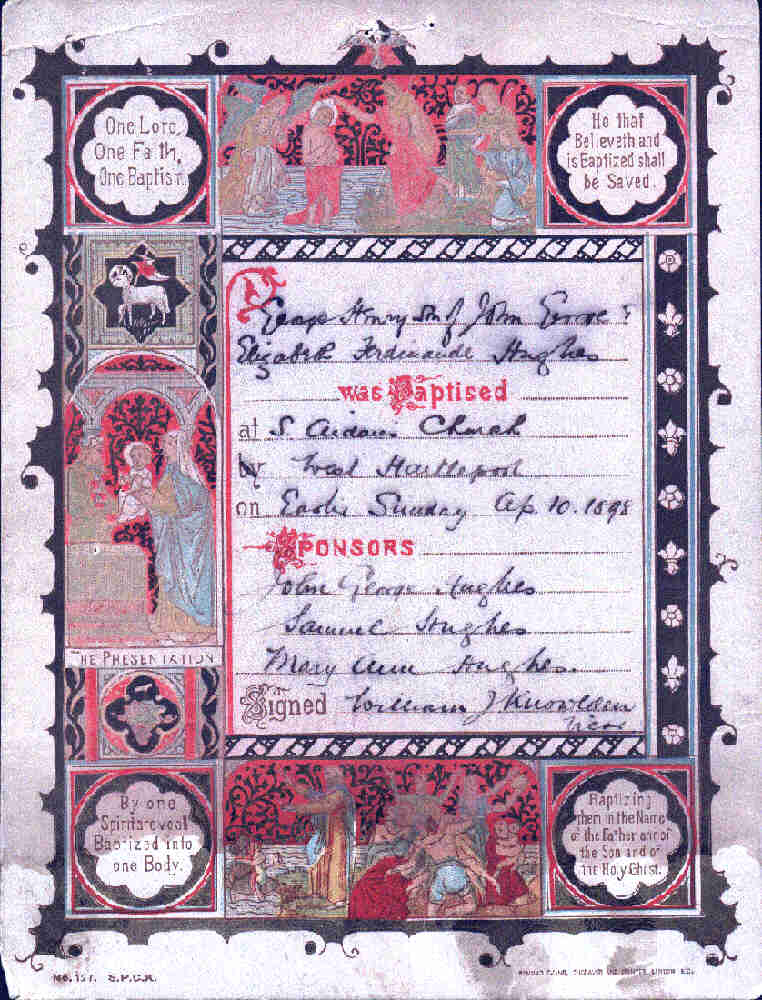 One Lord,
One Faith,
One Baptism.
He that
Believeth and
is Baptized shall
be Saved.
George Henry son of John George &
Elizabeth Ferdinande Hughes
was Baptised
at S. Aidans Church
by West Hartlepool
on Easter Sunday Ap. 10. 1898
SPONSORS
John George Hughes
Samuel Hughes
Mary Ann Hughes.
THE PRESENTATION
Signed William J Knowlden
By one
Spirit are we all
Baptized into
one Body.
Baptizing
them in the Name
of the Father and of
the Son and of
the Holy Ghost.
No. 157. S.P.C.K.